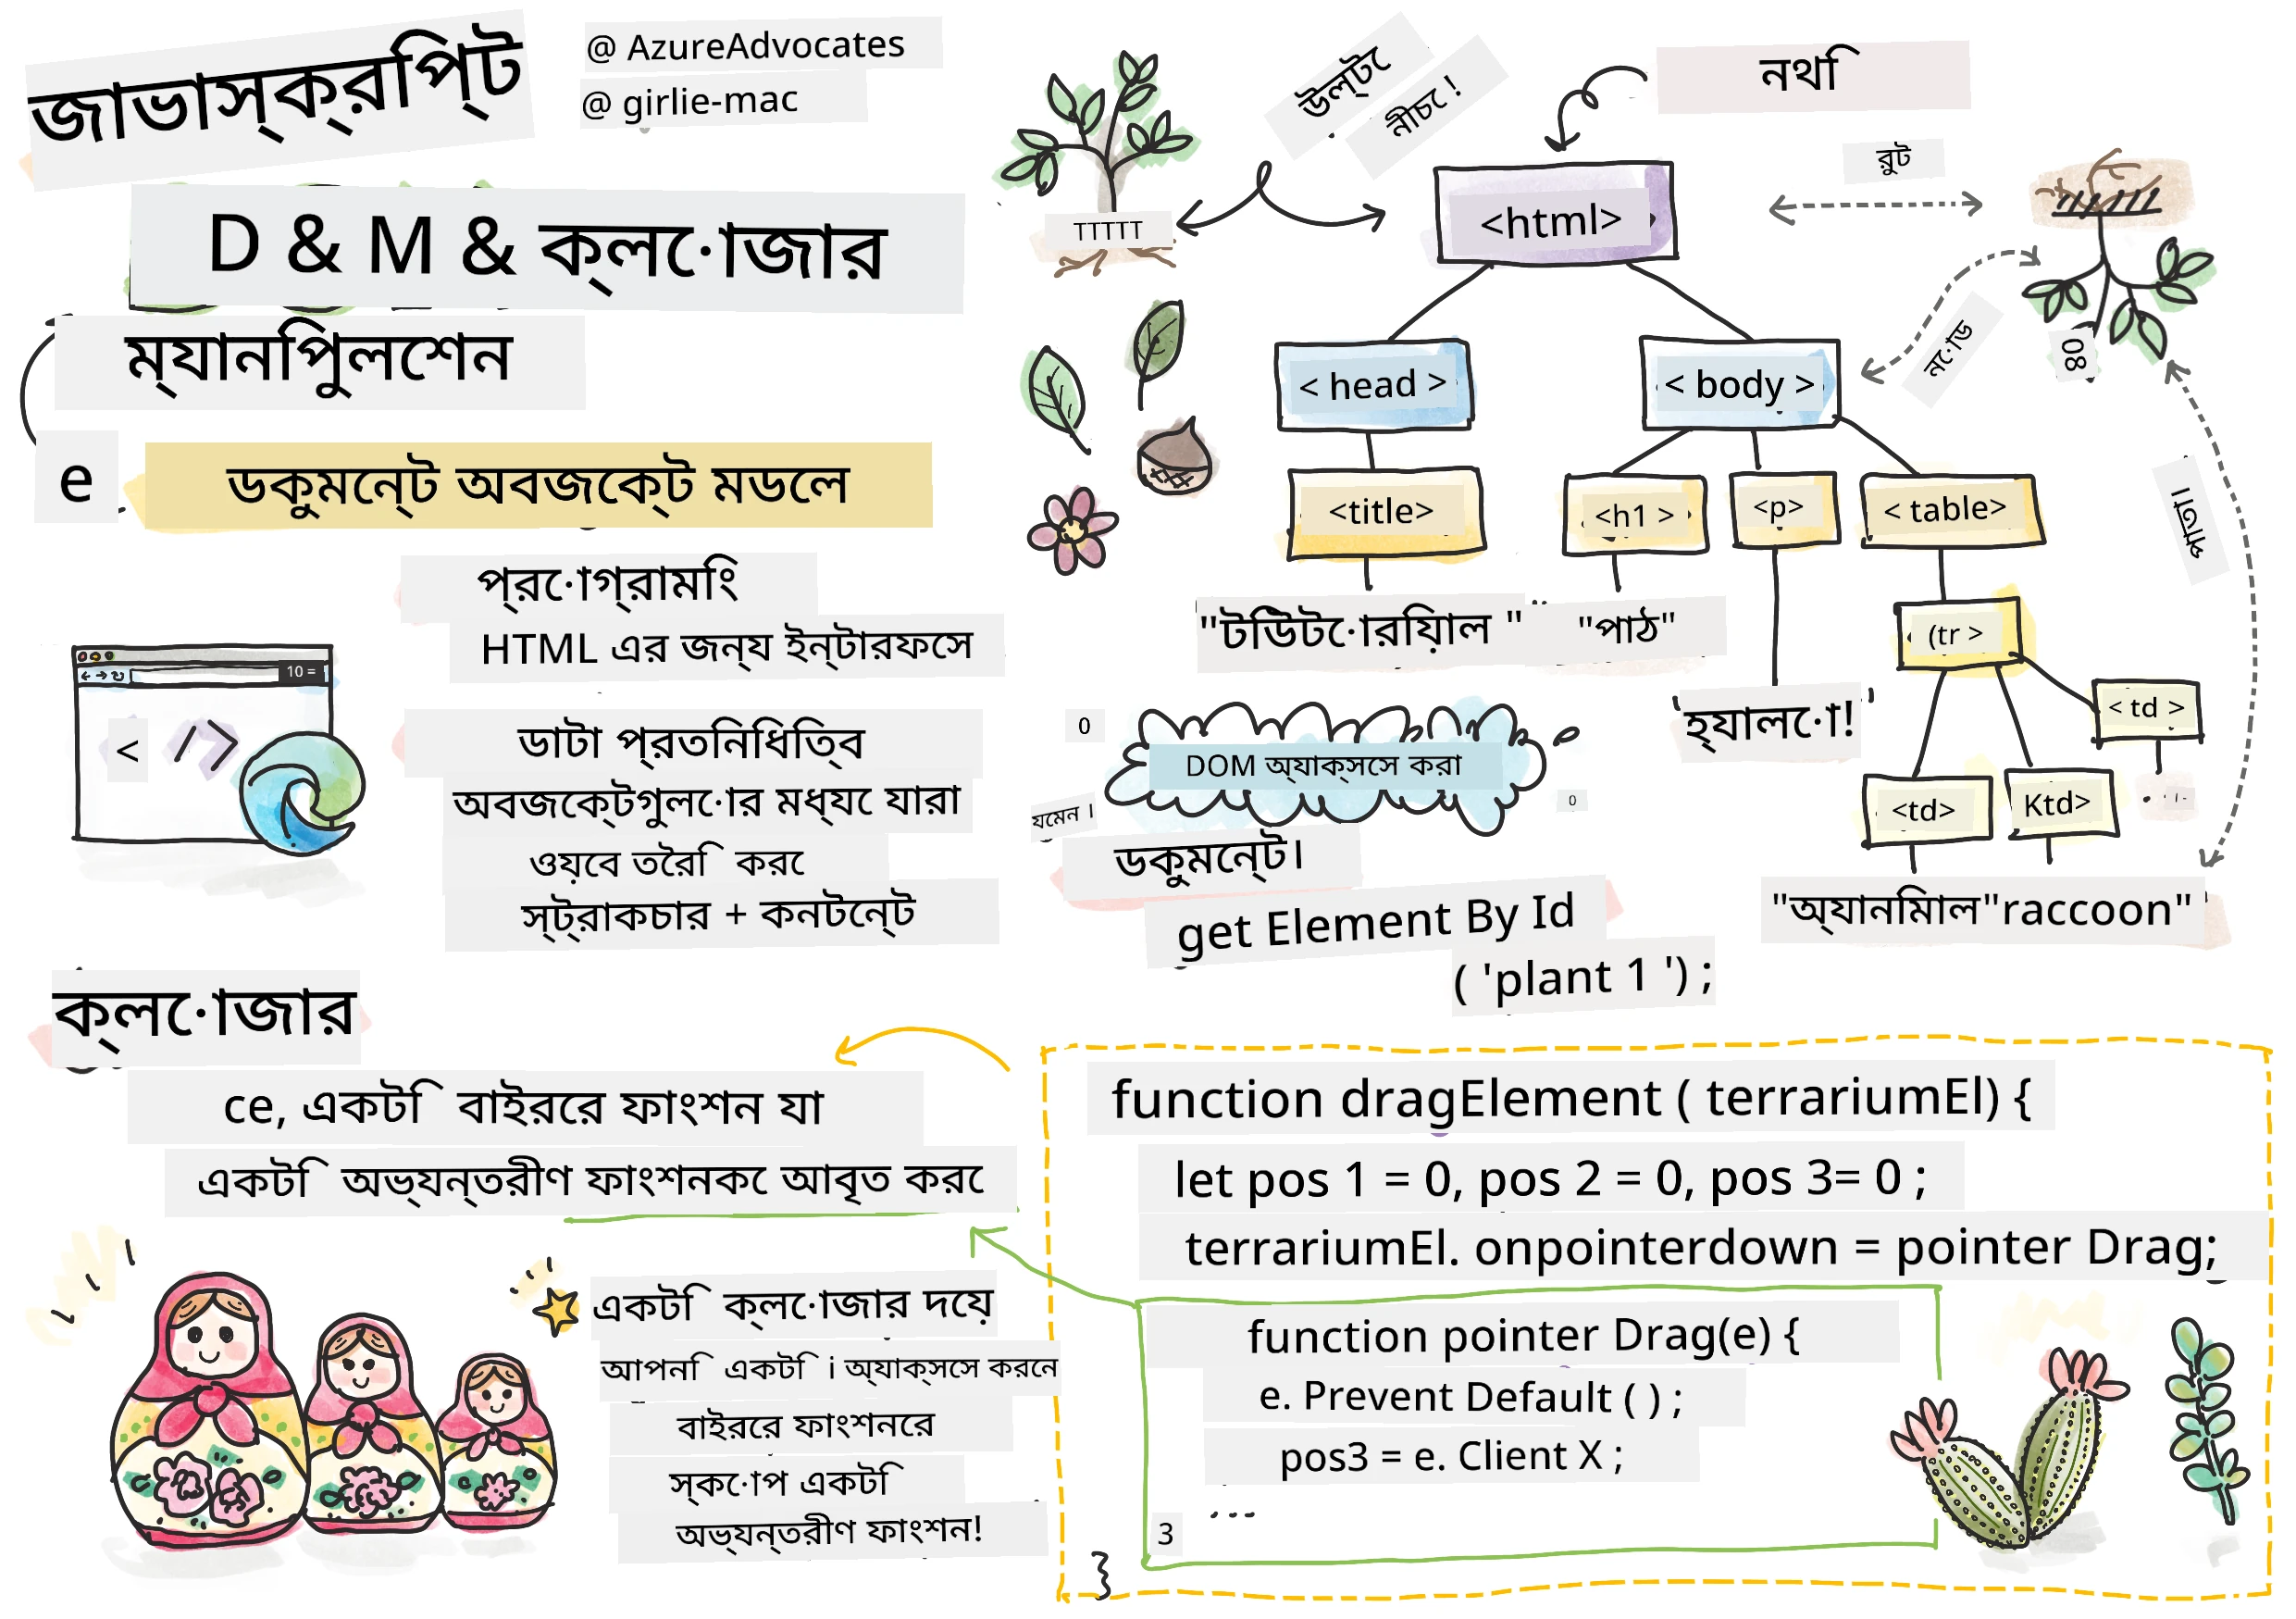 জাভাস্ক্রিপ্ট
@ AzureAdvocates
@ girlie-mac
D & M & ক্লোজার
ম্যানিপুলেশন
e
ডকুমেন্ট অবজেক্ট মডেল
প্রোগ্রামিং
HTML এর জন্য ইন্টারফেস
10 =
< />
ডাটা প্রতিনিধিত্ব
অবজেক্টগুলোর মধ্যে যারা
ওয়েব তৈরি করে
স্ট্রাকচার + কনটেন্ট
উল্টে
নীচে !
নথি
রুট
TTTTT
<html>
নোড
08
< head >
< body >
<title>
<h1 >
<p>
< table>
পাতা।
"টিউটোরিয়াল "
"পাঠ"
(tr >
'হ্যালো!'
< td >
<td>
Ktd>
"অ্যানিমাল"raccoon"
0
DOM অ্যাক্সেস করা
0
যেমন ।
ডকুমেন্ট।
get Element By Id
( 'plant 1 ') ;
ক্লোজার
ce, একটি বাইরের ফাংশন যা
একটি অভ্যন্তরীণ ফাংশনকে আবৃত করে
একটি ক্লোজার দিয়ে
আপনি একটি i অ্যাক্সেস করেন
বাইরের ফাংশনের
স্কোপ একটি
অভ্যন্তরীণ ফাংশন!
function dragElement ( terrariumEl) {
let pos 1 = 0, pos 2 = 0, pos 3= 0 ;
terrariumEl. onpointerdown = pointer Drag;
function pointer Drag(e) {
e. Prevent Default ( ) ;
pos3 = e. Client X ;
...
3
}